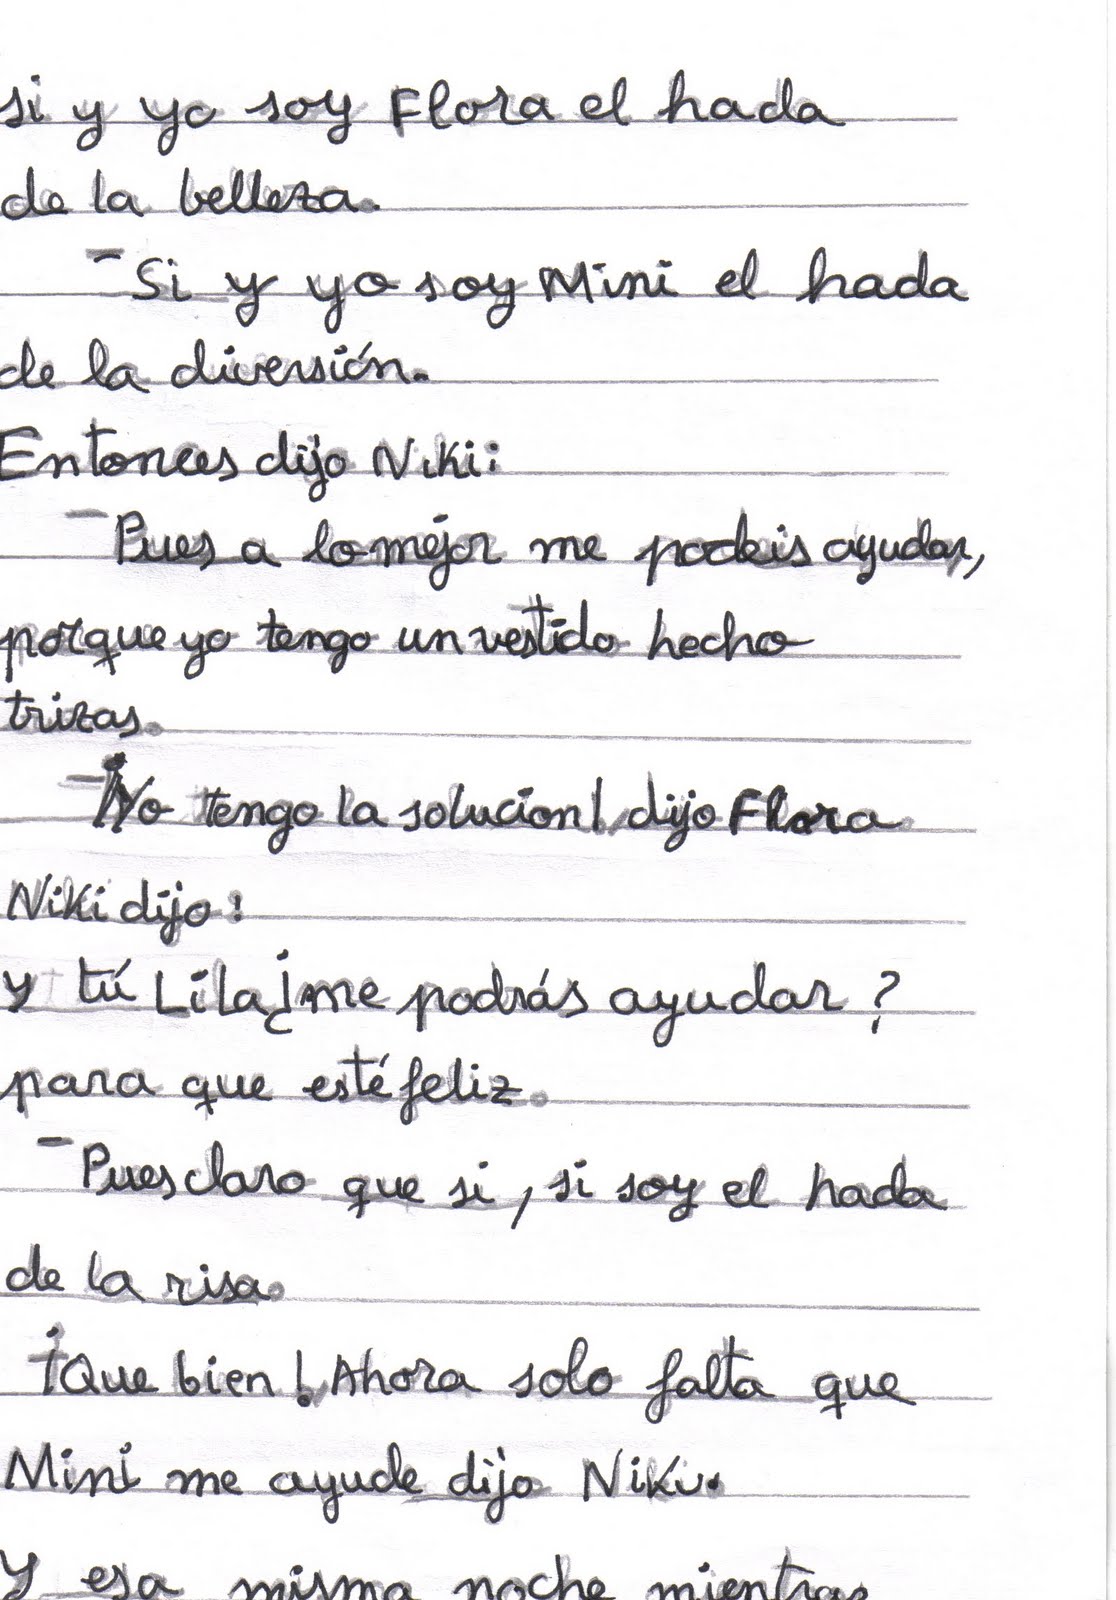 si y yo soy Flora el hada
de la belleza.
- Si y yo soy Mini el hada
de la diversión.
Entonces dijo Niki:
- Pues a lo mejor me podeis ayudar,
porque yo tengo un vestido hecho
trizas.
- ¡Yo tengo la solucion! dijo Flora
Niki dijo:
y tú Lila ¿me podrás ayudar?
para que esté feliz.
- Pues claro que si, si soy el hada
de la risa.
¡Que bien! Ahora solo falta que
Mini me ayude dijo Niki.
Y esa misma noche mientras